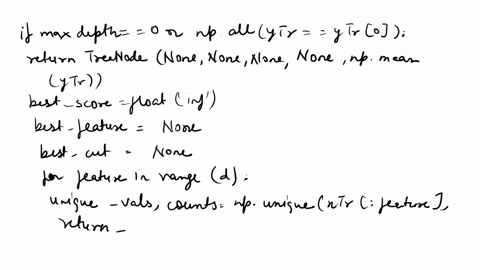 if max depth= = 0 or np all (yTr = = yTr [0]):
return TreeNode (None, None, None, None, np. mean
(yTr))
best_score = float ('inf')
best_feature = None
best_cut = None
for feature in range (d):
unique_vals, counts = np. unique (xTr [:feature],
return_